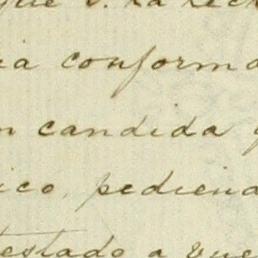 que S.
ia conforma
n candida
ico, pediend
estado a vue